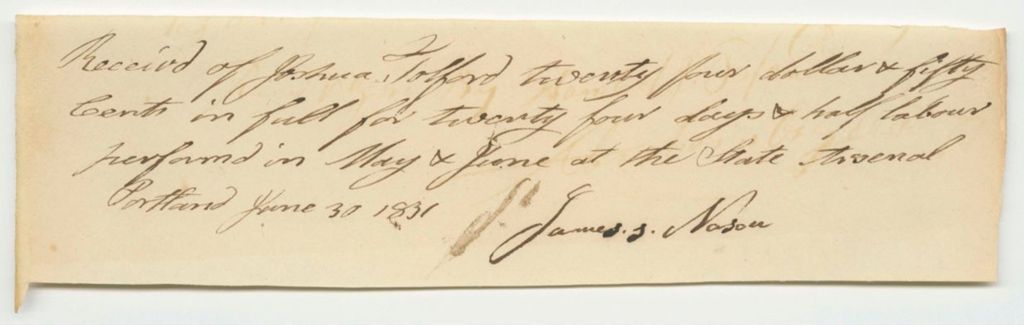 Receivd of Joshua Tolford twenty four dollar & fifty
Cents in full for twenty four days & half labour
performd in May & June at the State Arsenal
Portland June 30 1831
James. S. Nason